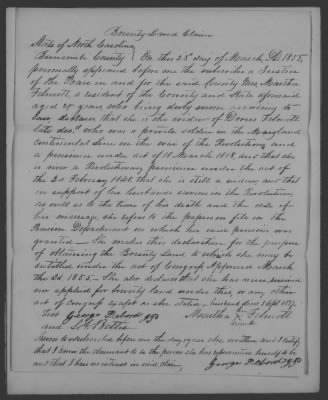 Bounty Land Claim
State of North Carolina
Buncombe County } On this 28th day of March AD 1855,
personally appeared before me the subscriber a Justice
of the Peace in and for the said County Mrs Martha
a resident of the County and State aforesaid
aged years who being duly sworn according to
law, declares that she is the widow of
late decd. who was a private soldier in the Maryland
continental Line in the war of the Revolution and
a pensioner under act of 18. March 1818. and that she
is now a Revolutionary pensioner under the act of
the 2nd February 1848 that she is still a widow and that
in support of her husbands service in the Revolution
as well as to the time of his death and the date of
her marriage, she refers to the papers on file in the
Pension Department on which her said pension was
granted — She makes this declaration for the purpose
of obtaining the Bounty Land to which she may be
entitled under the act of Congress Approved March
the 3d. 1855 — She also declares that she has never received
nor applied for bounty land under this or any other
act of Congress husband died 3 Sept
Test George Debord Martha her X mark
and Bettis
Sworn to & subscribed before me the day & year above written, and I certify
that I know the claimant to be the person she has represented herself to be
and that I have no interest in said claim, George Debord